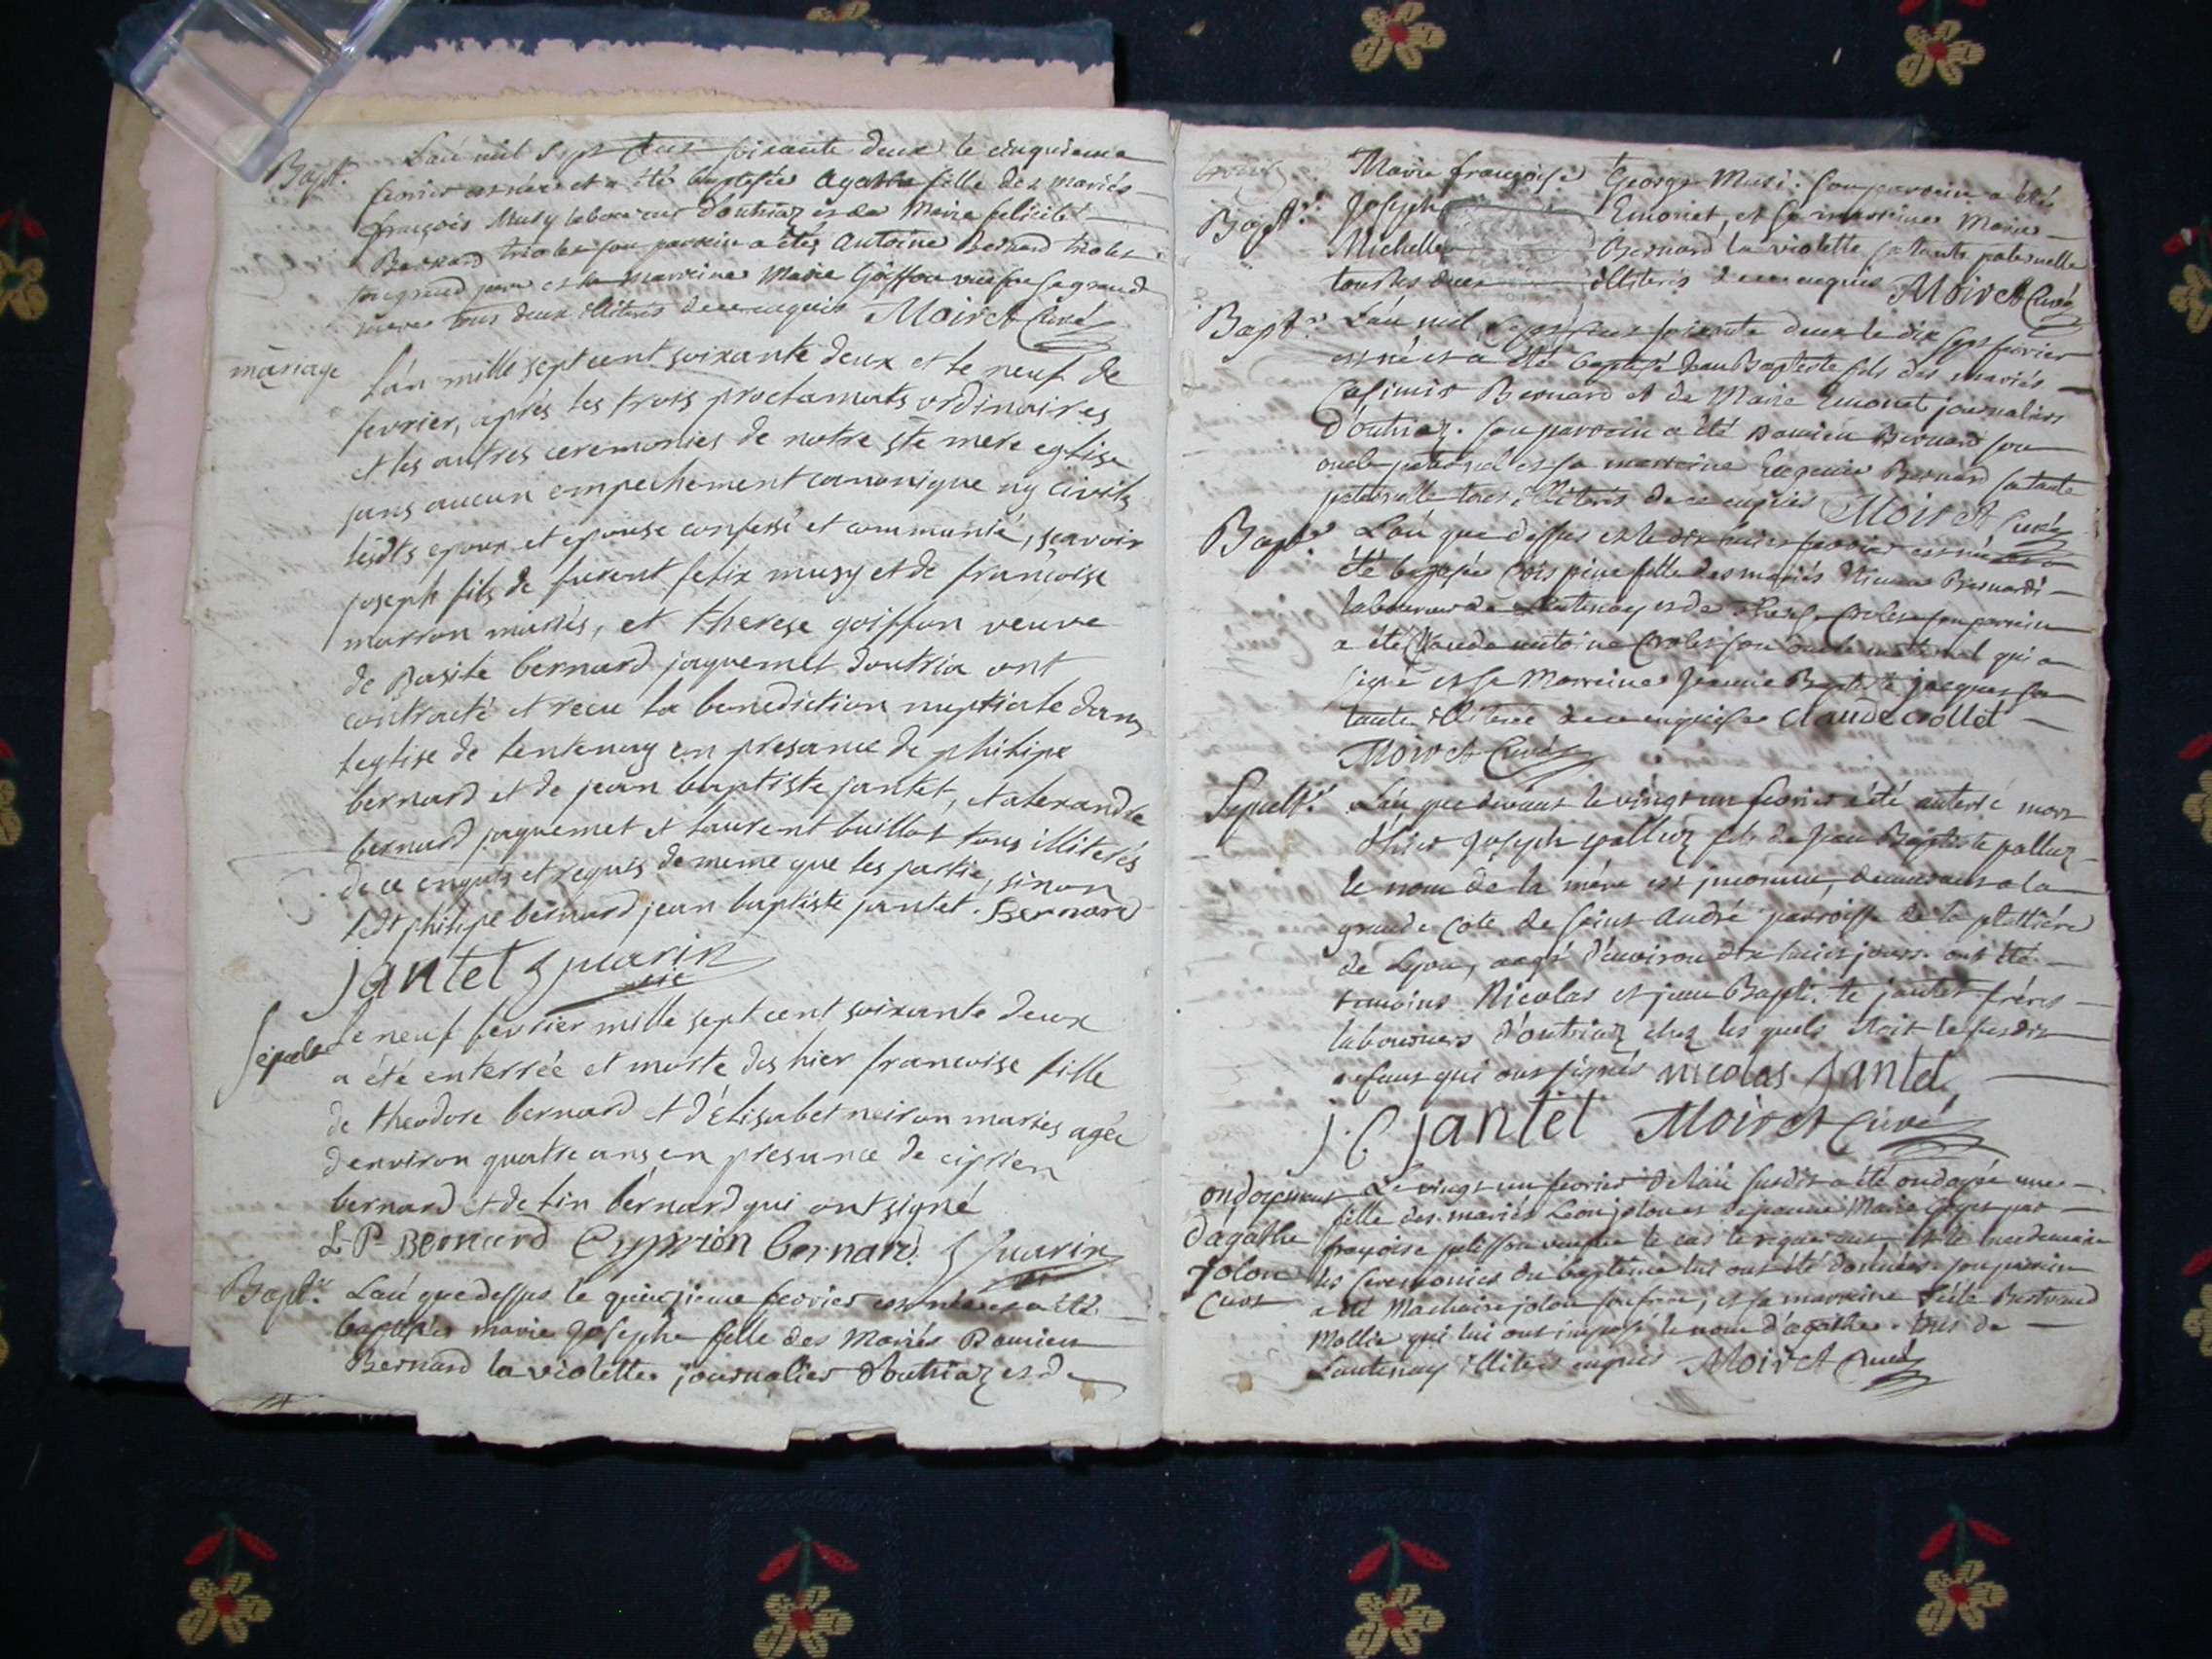 Bapt.
L'an mil sept cens soixante deux le cinquieme
fevrier est née et a été baptisée Agathe fille des mariés
françois Musy laboureur d'outriaz et de Marie felicité
Bernard triolet son parrain a été Antoine Bernard triolet
son grand pere et sa marreine Marie Goiffon sa grand
mere tous deux illiterés de ce enquis Moiret Curé
mariage
L'an mille sept cent soixante deux et le neuf de
fevrier, après les trois proclamats ordinaires
et les autres ceremonies de notre ste mere eglise
sans aucun empechement canonique ny civils
lesdts epoux et epouse confessé et communié, scavoir
joseph fils de furent felix musy et de françoise
marron mariés, et therese goiffon veuve
de Basile bernard jaquemet doutria ont
contracté et recu la benediction nuptiale dans
leglise de lentenay en presance de philipe
bernard et de jean baptiste jantet, et alexandre
bernard jaquemet et laurent buillot tous illiterés
de ce enquis et requis de meme que les partie, sinon
ledt philipe bernard jean baptiste jantet. Bernard
jantet Juarin
vic
Sepult
Le neuf fevrier mille sept cent soixante deux
a été enterrée et morte des hier francoise fille
de theodore bernard et d'Elisabet neiron mariés agée
denviron quatre ans en presance de ciprien
bernard et de lin bernard qui ont signé
L-P Bernard Cyprien bernard Juarin
Bapt.
L'an que dessus le quinzieme fevrier est née et a été
baptisée marie Josephe fille des Mariés Damien
Bernard la violette journalier d'outriaz et de
Marie françoise George Musi. son parrain a étés
Bapt. Joseph Emonet, et sa marreine Marie
Michelle Bernard la violette sa tante paternelle
tous les deux illiterés de ce enquis Moiret Curé
Bapt.
L'an mil sept cens soixante deux le dix sept fevrier
est né et a été baptisé Jean Baptiste fils des mariés
Casimir Bernard et de Marie Emonet journaliers
d'outriaz. son parrain a été Damien Bernard son
oncle paternel et sa marreine Eugenie Bernard sa tante
paternelle tous illiterés de ce enquis Moiret Curé
Bapt.
L'an que dessus et le dix huit fevrier est née
été baptisée Crispine fille des mariés Bernard
laboureur de Lentenay et de Crolet son parrain
a été Claude antoine Crolet son oncle maternel qui a
signé et sa Marreine Jeanne Baptiste jacquet sa
tante illiterée de ce enquise Claude crollet
Moiret Curé
Sepult.
L'an que devant le vingt un fevrier a été enterré mort
d'hier Joseph palluz fils de Jean Baptiste palluz
le nom de la mére est inconnu, demeurant a la
grande Cote de saint André parroisse de la platiére
de Lyon, aagé d'environ dix huit jours. ont été
temoins Nicolas et jean Baptiste jantet fréres
laboureurs d'outriaz chez les quels etoit le susdit
enfant qui ont signés nicolas Jantet
j. C jantet Moiret Curé
ondoyement
d'agathe
Jolon
Le vingt un fevrier de l'an susdit a été ondoyée une
fille des mariés Leon jolon et de jeanne Marie par
françoise le cas le requerant et le lendemain
les ceremonies du baptême lui ont été données. son parrain
a été Machaire jolon son frere, et sa marreine Bertrand
Mollie qui lui ont imposé le nom d'agathe. tous de
Lantenay illiterés enquis Moiret Curé